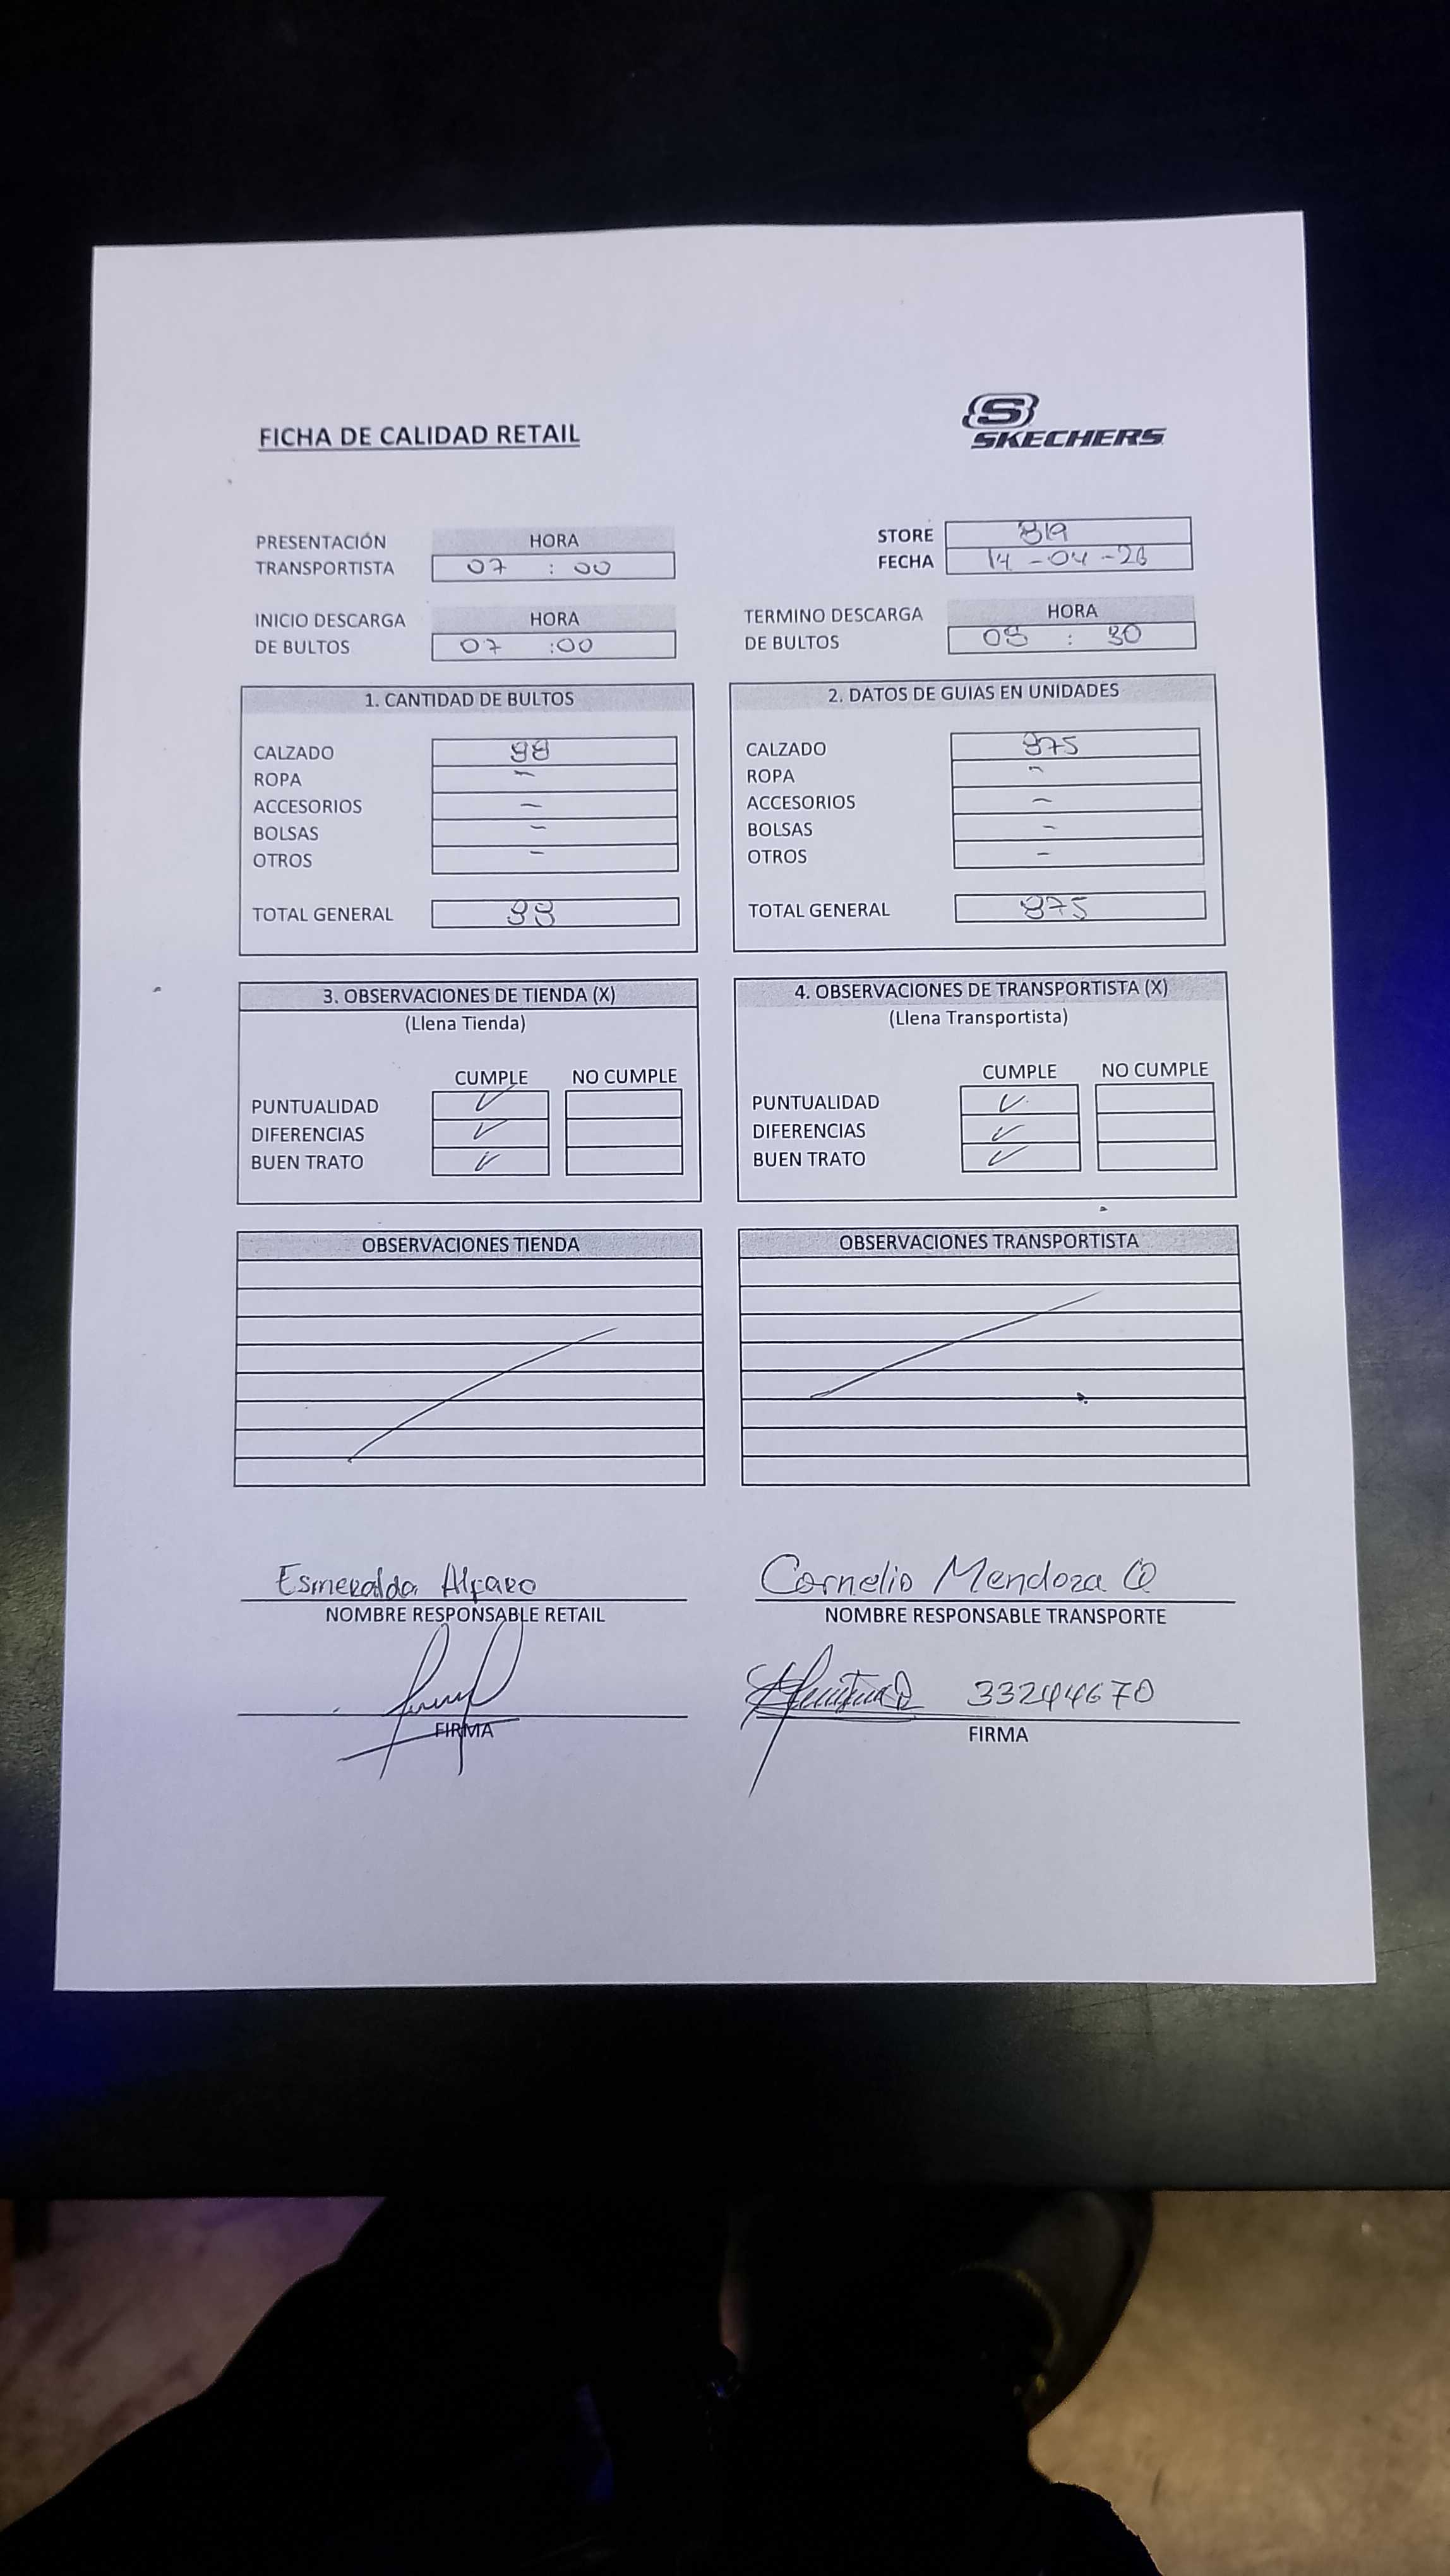 FICHA DE CALIDAD RETAIL
SKECHERS
PRESENTACIÓN TRANSPORTISTA
HORA
07 : 00
STORE 819
FECHA 14-04-26
INICIO DESCARGA DE BULTOS
HORA
07 :00
TERMINO DESCARGA DE BULTOS
HORA
: 30
1. CANTIDAD DE BULTOS
CALZADO
ROPA -
ACCESORIOS -
BOLSAS -
OTROS -
TOTAL GENERAL
2. DATOS DE GUIAS EN UNIDADES
CALZADO 975
ROPA -
ACCESORIOS -
BOLSAS -
OTROS -
TOTAL GENERAL 975
3. OBSERVACIONES DE TIENDA (X)
(Llena Tienda)
CUMPLE NO CUMPLE
PUNTUALIDAD ✓
DIFERENCIAS ✓
BUEN TRATO ✓
4. OBSERVACIONES DE TRANSPORTISTA (X)
(Llena Transportista)
CUMPLE NO CUMPLE
PUNTUALIDAD ✓
DIFERENCIAS ✓
BUEN TRATO ✓
OBSERVACIONES TIENDA
OBSERVACIONES TRANSPORTISTA
Esmeralda Alfaro
NOMBRE RESPONSABLE RETAIL
FIRMA
Cornelio Mendoza Q
NOMBRE RESPONSABLE TRANSPORTE
33244670
FIRMA